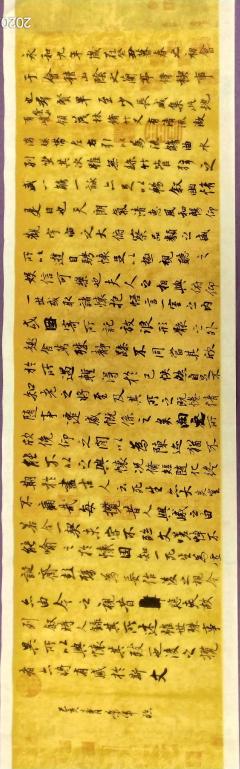 2020
永和九年歲在癸丑暮春之初會
于會稽山陰之蘭亭脩禊事
也羣賢畢至少長咸集此地
有崇山峻領茂林脩竹又有清流激
湍暎帶左右引以為流觴曲水
列坐其次雖無絲竹管弦之
盛一觴一詠亦足以暢敘幽情
是日也天朗氣清惠風和暢仰
觀宇宙之大俯察品類之盛
所以遊目騁懷足以極視聽之
娛信可樂也夫人之相與俯仰
一世或取諸懷抱悟言一室之內
或因寄所託放浪形骸之外
趣舍萬殊靜躁不同當其欣
於所遇暫得於己怏然自足不
知老之將至及其所之既惓情
隨事遷感慨係之矣向之所
欣俛仰之閒以為陳迹猶不
能不以之興懷況脩短隨化終
期於盡古人云死生亦大矣豈
不痛哉每攬昔人興感之由
若合一契未嘗不臨文嗟悼不
能喻之於懷固知一死生為虛
誕齊彭殤為妄作後之視今
亦由今之視昔悲夫故
列敘時人錄其所述雖世殊事
異所以興懷其致一也後之攬
者亦將有感於斯文